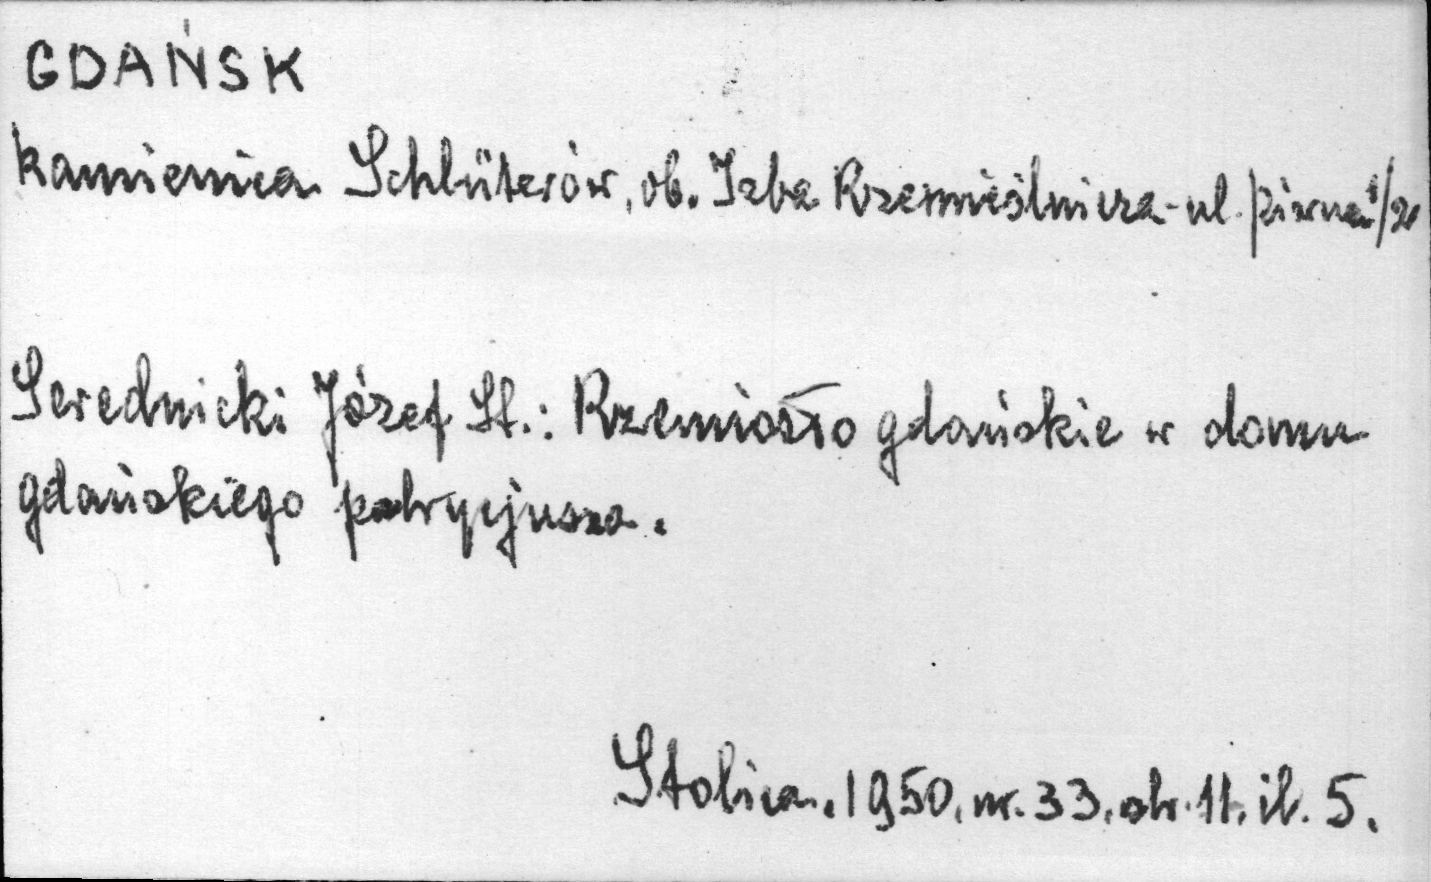 GDAŃSK
Kamienica Schlüterów, ob. Izba Rzemieślnicza - ul. Piwna 1/2
Serednicki Józef St.: Rzemiosło gdańskie w domu
gdańskiego patrycjusza.
Stolica. 1950. nr. 33. str. 11. il. 5.